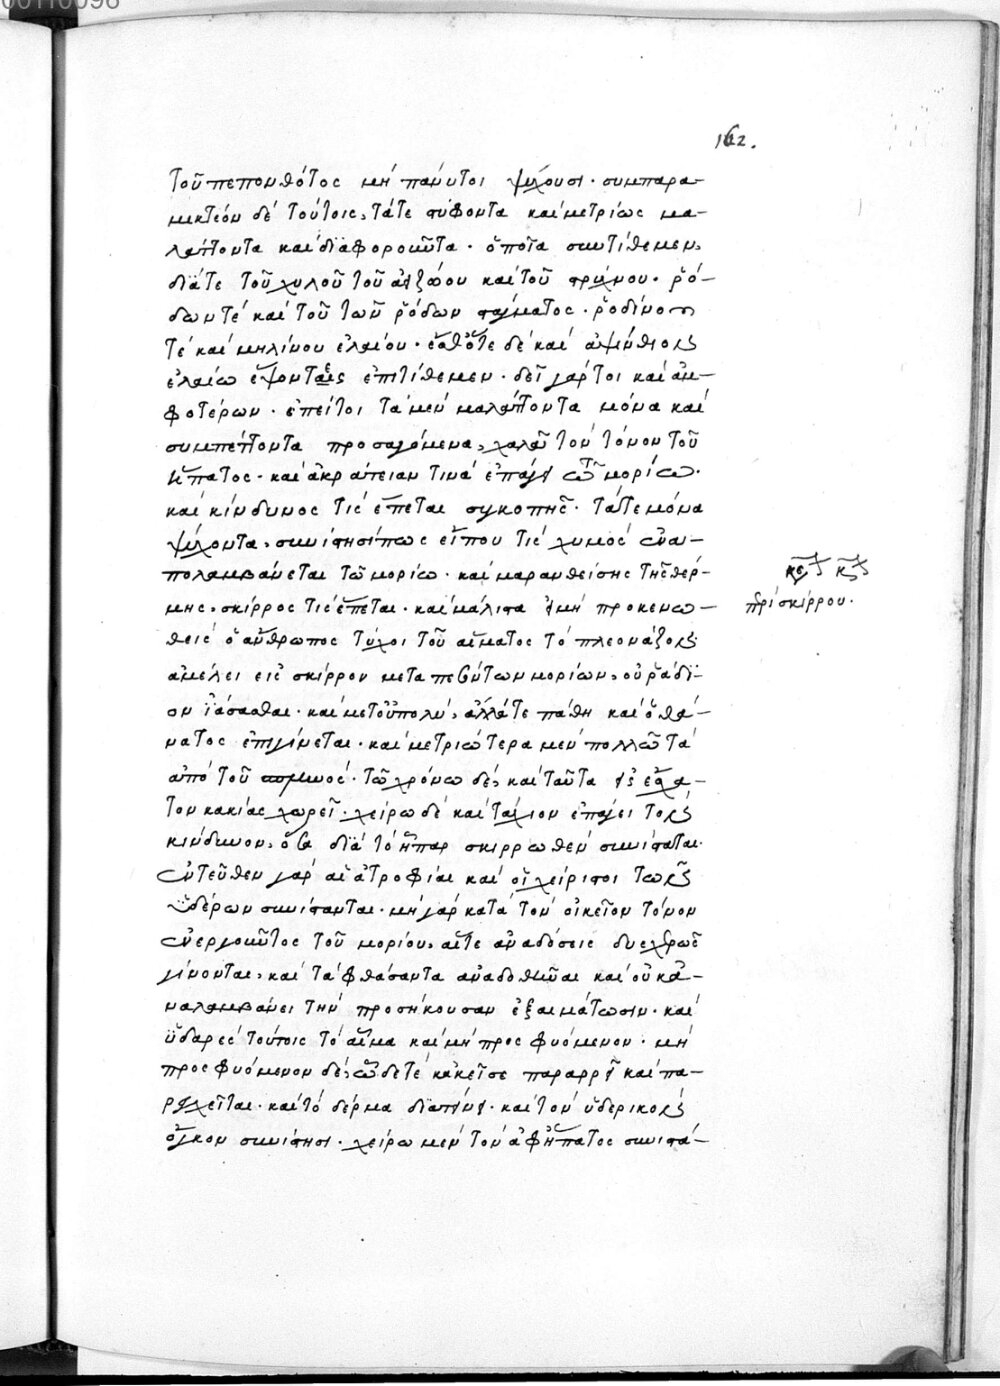 00110098
162.
τοῦ πεπονθότος μὴ πάνυ τοι ψύχουσι· συμπαρα-
μικτέον δὲ τούτοις, τά τε στύφοντα καὶ μετρίως μα-
λάττοντα καὶ διαφοροῦντα· ὁποῖα συντίθεμεν,
διά τε τοῦ χυλοῦ τοῦ ἀειζώου καὶ τοῦ στρύχνου· ῥό-
δων τὲ καὶ τοῦ τῶν ῥόδων σταγματος· ῥοδίνου
τὲ καὶ μηλίνου ἐλαίου· ἔσθότε δὲ καὶ ἀψίνθιον
ἐλαίω ἕψοντες ἐπιτίθεμεν· δεῖ γάρ τοι καὶ ἀμ-
φοτέρων· ἐπεί τοι τὰ μὲν μαλάττοντα μόνα καὶ
συμπέττοντα προσαγόμενα, χαλᾶ τὸν τόνον τοῦ
ἥπατος· καὶ ἀκράτειαν τινὰ ἐπάγει τῶ μορίω·
καὶ κίνδυνος τίς ἕπεται συγκοπῆς· τά τε μόνα
ψύχοντα, συνίστησί πως εἴ που τίς χυμὸς ἐναι-
πολαμβάνεται τῶ μορίω· καὶ μαρανθείσης τῆς θέρ-
μης, σκίρρος τίς ἕπεται· καὶ μάλιστα εἰ μὴ προκενω-
θεὶς ὁ ἄνθρωπος τύχοι τοῦ αἵματος τὸ πλεονάζον·
ἀμέλει εἰς σκίρρον μεταπεσόντων μορίων, οὐ ῥάδι-
ον ἰάσασθαι· καὶ μετοὐπολὺ, ἄλλάτε πάθη καὶ ὁ θά-
νατος ἐπιγίνεται· καὶ μετριώτερα μὲν πολλῶ τὰ
ἀπὸ τοῦ σπληνός· τῶ χρόνω δὲ, καὶ ταῦτα εἰς ἔσχα-
τον κακίας χωρεῖ· χείρω δὲ καὶ τάχιον ἐπάγει τὸν
κίνδυνον, ὅσα διὰ τὸ ἧπαρ σκιρρωθὲν συνίσταται·
ἐντεῦθεν γὰρ αἱ ἀτροφίαι καὶ οἱ χείριστοι τῶν
ὑδέρων συνίστανται· μὴ γὰρ κατὰ τὸν οἰκεῖον τόνον
ἐνεργοῦντος τοῦ μορίου, αἵτε ἀναδόσεις δυσχερῶς
γίνονται, καὶ τὰ φθάσαντα ἀναδοθῆναι καὶ οὐκ ἀ-
ναλαμβάνει τὴν προσήκουσαν ἐξαιμάτωσιν· καὶ
ὑδαρὲς τούτοις τὸ αἷμα καὶ μὴ προσφυόμενον· μὴ
προσφυόμενον δὲ, ὧδετὲ κἀκεῖσε παραρρεῖ καὶ πα-
ρεγχεῖται· καὶ τὸ δέρμα διατείνει· καὶ τὸν ὑδερικὸν
ὄγκον συνίστησι· χείρω μὲν τὸν ἀφ' ἥπατος συνιστά-
κεφ κζ
περὶ σκίρρου·